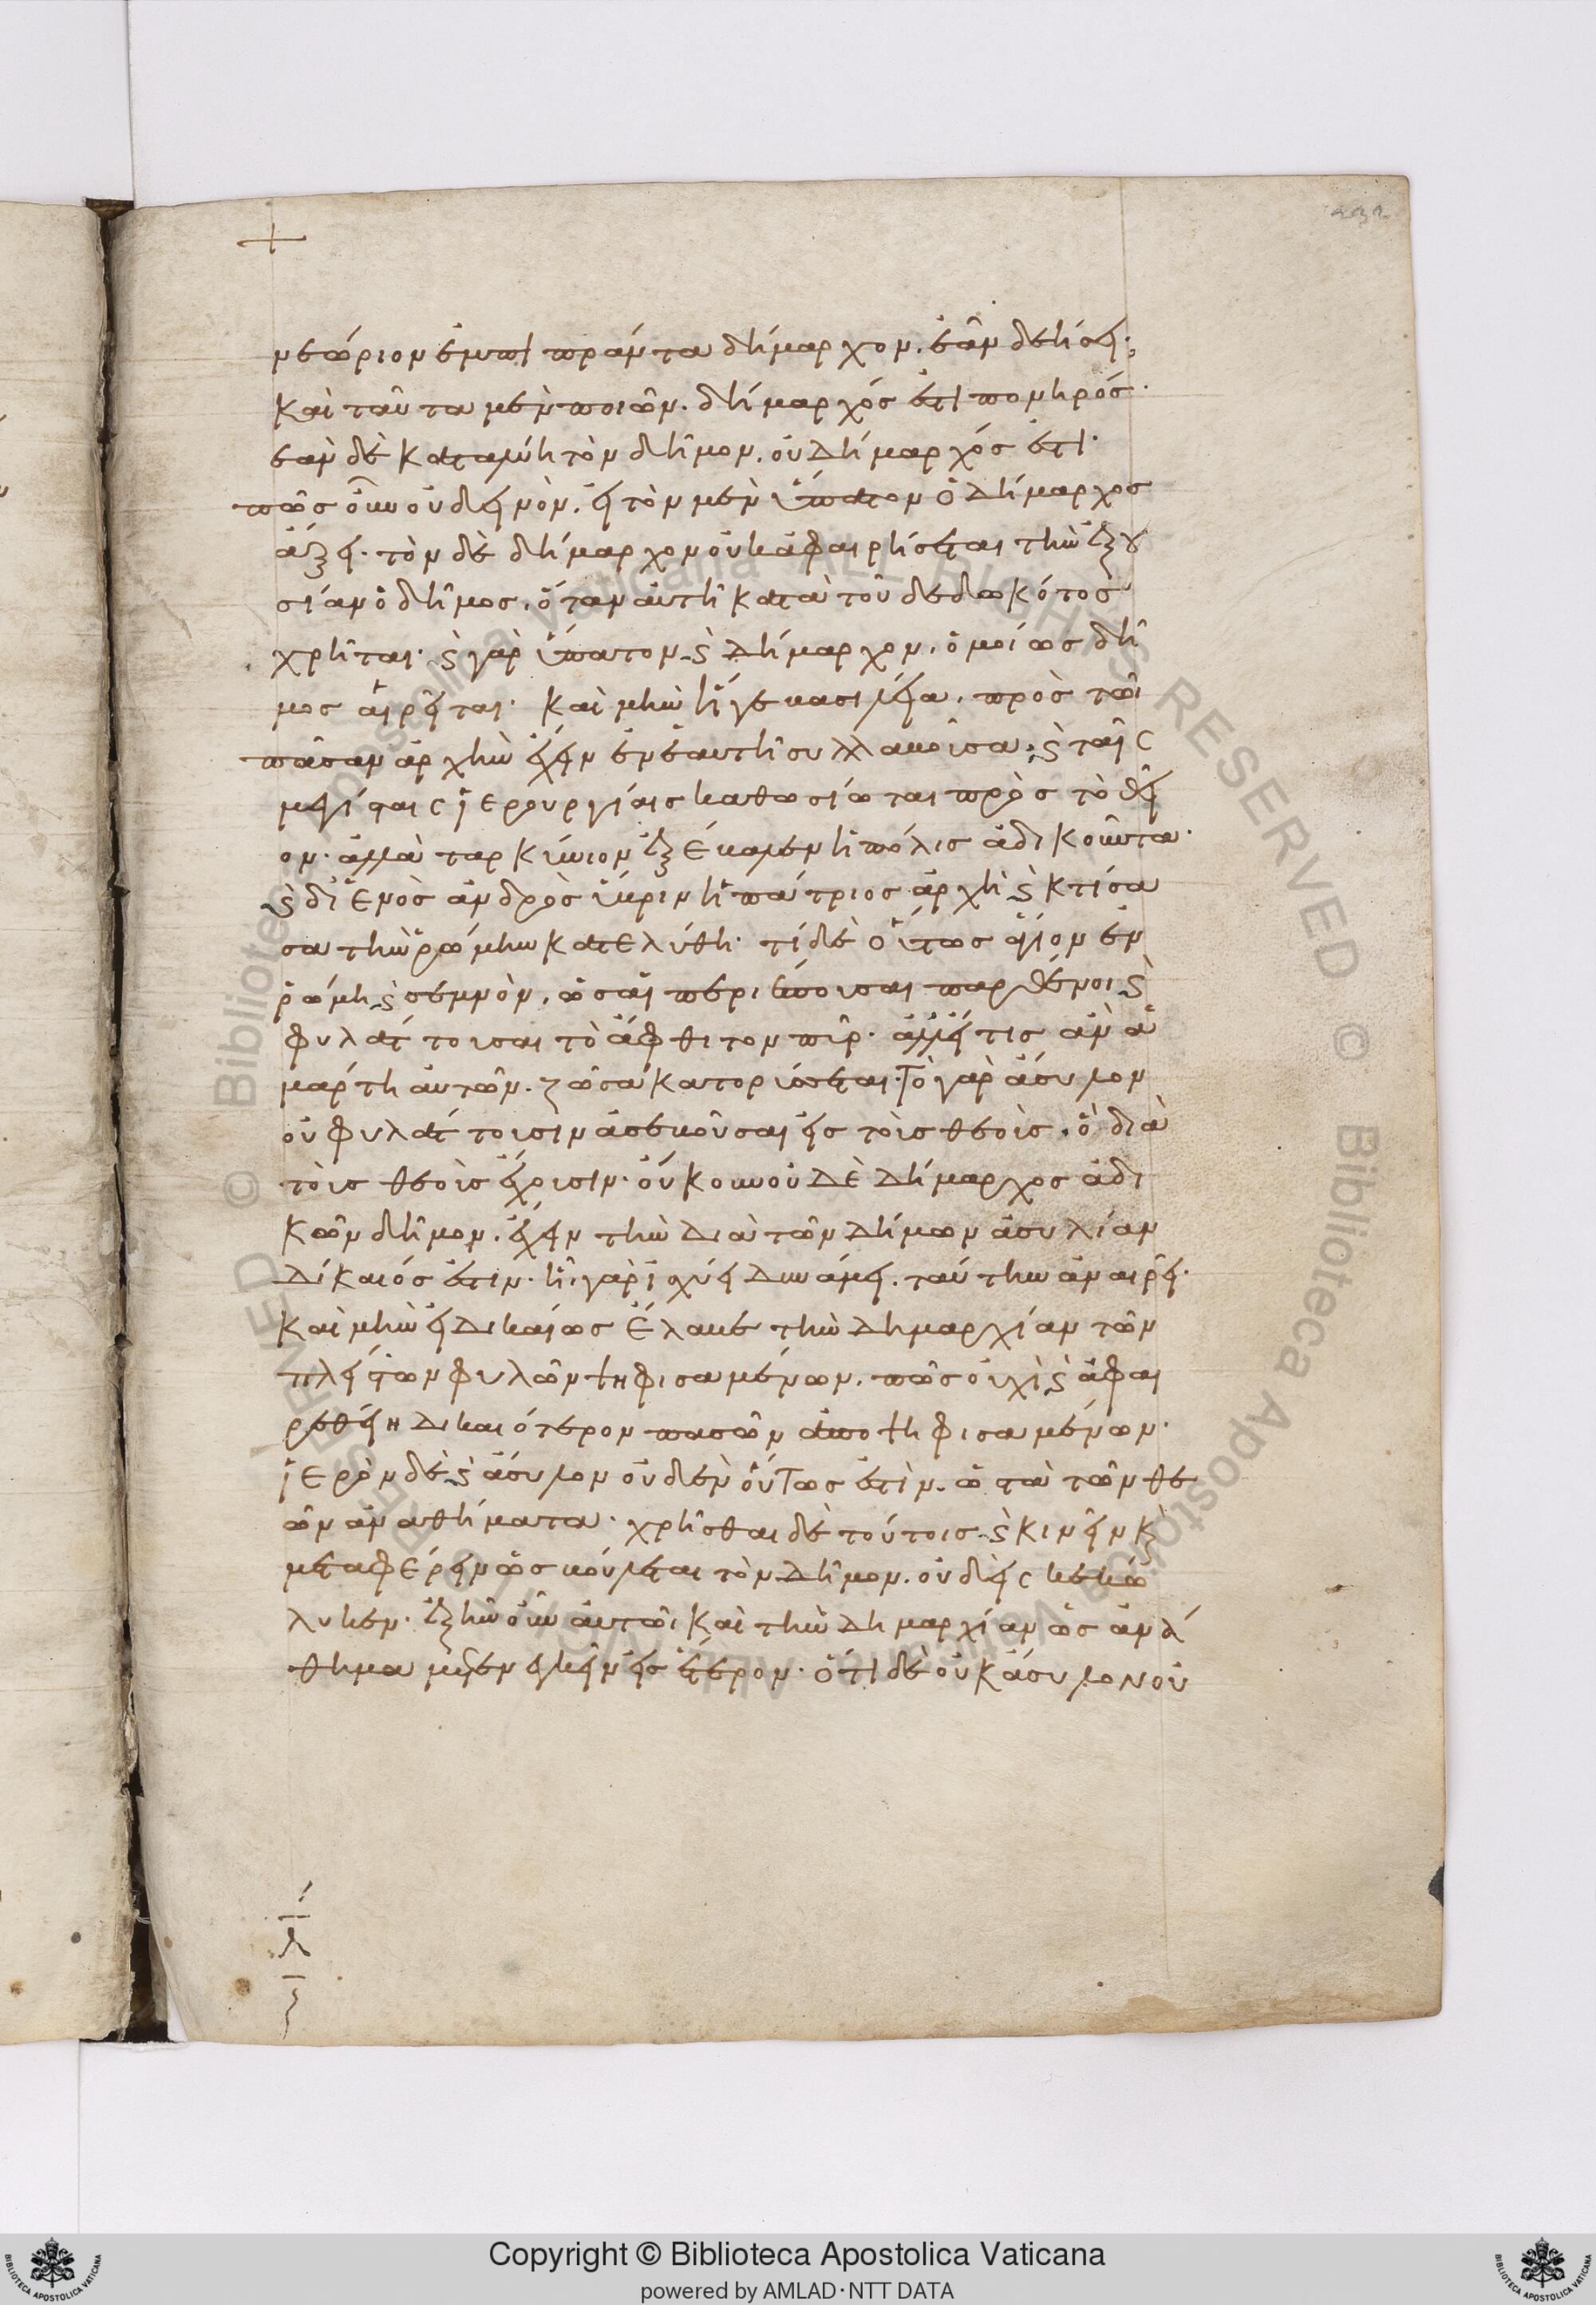 νεώριον ἐμπιπράντα δήμαρχον. ἐᾶν δεήσει·
καὶ ταῦτα μὲν ποιῶν. δήμαρχός ἐστι πονηρός·
ἐὰν δὲ καταλύη τὸν δῆμον. οὐ δήμαρχός ἐστι·
πῶς οὖν οὐ δεινὸν. εἰ τὸν μὲν ὕπατον ὁ δήμαρχος
ἄξει. τὸν δὲ δήμαρχον οὐκ ἀφαιρήσεται τὴν ἐξου
σίαν ὁ δῆμος. ὅταν αὐτῆ κατὰ τοῦ δεδωκότος
χρῆται· ϛ γὰρ ὕπατον ϛ δήμαρχον. ὁμοίως δῆ
μος αἱρεῖται· καὶ μὴν ἥγε βασιλεία. πρὸς τῶι
πᾶσαν ἀρχὴν ἔχειν ἐν ἑαυτῆ συλλαβοῦσα. ϛ ταῖς
μεγίσταις ἱερουργίαις καθωσίωται πρὸς τὸ θεῖ
ον· ἀλλὰ ταρκύνιον ἐξέβαλεν ἡ πόλις ἀδικοῦντα·
ϛ δι ἑνὸς ἀνδρὸς ὕβριν ἡ πάτριος ἀρχὴ ϛ κτίσα
σα τὴν ῥώμην κατελύθη· τί δὲ οὕτως ἅγιον ἐν
ῥώμη ϛ σεμνὸν. ὡς αἱ περιέπουσαι παρθένοι ϛ
φυλάττουσαι τὸ ἄφθιτον πῦρ· ἀλλ εἴτις ἂν ἁ
μάρτη αὐτῶν. ζῶσα κατορύσσεται· Τὸ γὰρ ἄσυλον
οὐ φυλάττουσιν ἀσεβοῦσαι εἰς τοὺς θεοὺς. ὃ διὰ
τοὺς θεοὺς ἔχουσιν· οὔκουν οὐδὲ δήμαρχος ἀδι
κῶν δῆμον. ἔχειν τὴν διὰ τὸν δῆμον ἀσυλίαν
δίκαιός ἐστιν. ἧι γὰρ ἰσχύει δυνάμει. ταύτην ἀναιρεῖ·
καὶ μὴν εἰ δικαίως ἔλαβε τὴν δημαρχίαν τῶν
πλείστων φυλῶν ψηφισαμένων. πῶς οὐχὶ ϛ ἀφαι
ρεθείη δικαιότερον πασῶν ἀποψηφισαμένων·
ἱερὸν δὲ ϛ ἄσυλον οὐδὲν οὕτως ἐστὶν. ὡς τὰ τῶν θε
ῶν ἀναθήματα· χρῆσθαι δὲ τούτοις ϛ κινεῖν καὶ
μεταφέρειν ὡς βούλεται τὸν δῆμον. οὐδεὶς κεκώ
λυκεν· ἐξῆν οὖν αὐτῶι καὶ τὴν δημαρχίαν ὡς ἀνά
θημα μετενεγκεῖν εἰς ἕτερον· ὅτι δὲ οὐκ ἄσυλον οὐ